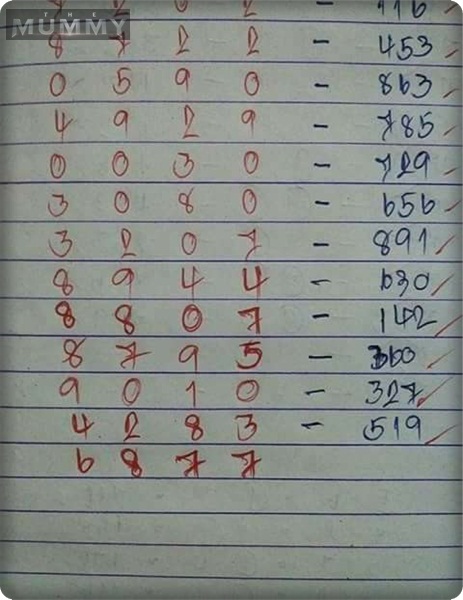 THE
MUMMY
8 2 0 2 - 116
8 7 2 2 - 453
0 5 9 0 - 863
4 9 2 9 - 785
0 0 3 0 - 729
3 0 8 0 - 656
3 2 0 7 - 891
8 9 4 4 - 630
8 8 0 7 - 142
8 7 9 5 - 360
9 0 1 0 - 327
4 2 8 3 - 519
6 8 7 7